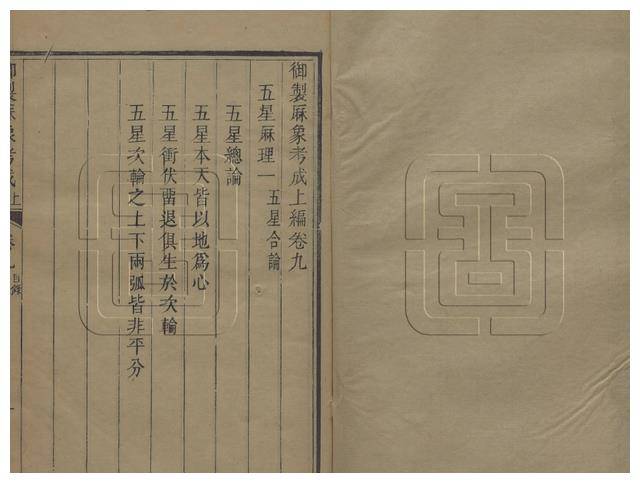 御製厤象考成上編卷九
五星厤理一 五星合論
五星總論
五星本天皆以地爲心
五星衝伏畱退俱生於次輪
五星次輪之上下兩弧皆非平分
御製厤象考成上 卷九 目錄 一